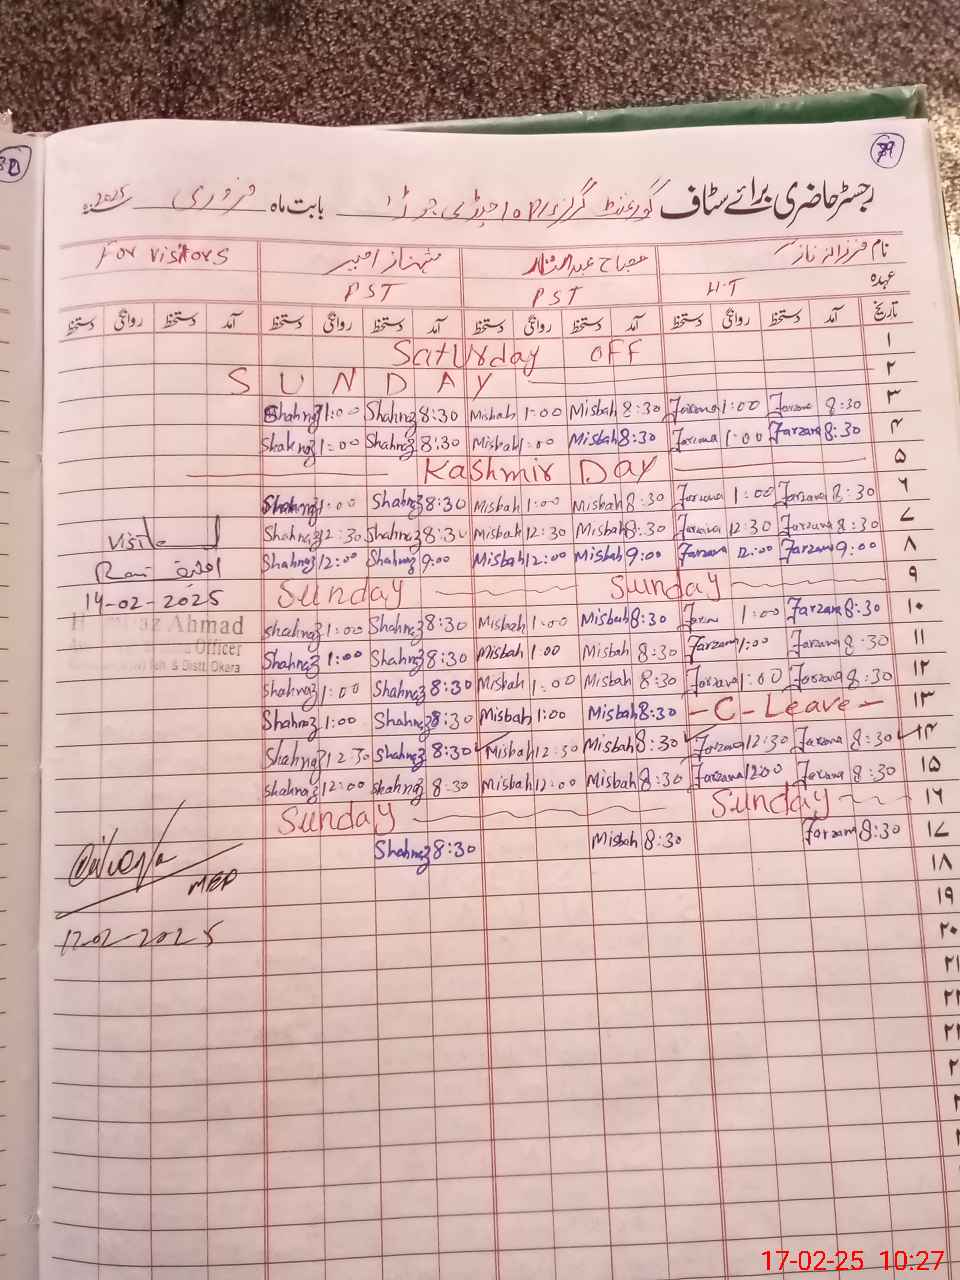 79
رجسٹر حاضری برائے سٹاف گورنمنٹ گرلز بابت ماہ فروری 2025ء
نام فرزانہ ناز مصباح عبدالستار شہناز For visitors
عہدہ H.T PST PST
تاریخ آمد دستخط روانگی دستخط آمد دستخط روانگی دستخط آمد دستخط روانگی دستخط آمد دستخط روانگی دستخط
Saturday OFF ۱
SUNDAY ۲
Shahnaz 1:00 Shahnaz 8:30 Misbah 1:00 Misbah 8:30 Farzana 1:00 Farzana 8:30 ۳
Shahnaz 1:00 Shahnaz 8:30 Misbah 1:00 Misbah 8:30 Farzana 1:00 Farzana 8:30 ۴
Kashmir Day ۵
Shahnaz 1:00 Shahnaz 8:30 Misbah 1:00 Misbah 8:30 Farzana 1:00 Farzana 8:30 ۶
Shahnaz 12:30 Shahnaz 8:30 Misbah 12:30 Misbah 8:30 Farzana 12:30 Farzana 8:30 ۷
Shahnaz 12:00 Shahnaz 9:00 Misbah 12:00 Misbah 9:00 Farzana 12:00 Farzana 9:00 ۸
Sunday Sunday ۹
Shahnaz 1:00 Shahnaz 8:30 Misbah 1:00 Misbah 8:30 Farzana 1:00 Farzana 8:30 ۱۰
Shahnaz 1:00 Shahnaz 8:30 Misbah 1:00 Misbah 8:30 Farzana 1:00 Farzana 8:30 ۱۱
Shahnaz 1:00 Shahnaz 8:30 Misbah 1:00 Misbah 8:30 Farzana 1:00 Farzana 8:30 ۱۲
Shahnaz 1:00 Shahnaz 8:30 Misbah 1:00 Misbah 8:30 - C - Leave - ۱۳
Shahnaz 12:30 Shahnaz 8:30 Misbah 12:30 Misbah 8:30 Farzana 12:30 Farzana 8:30 ۱۴
Shahnaz 12:00 Shahnaz 8:30 Misbah 12:00 Misbah 8:30 Farzana 12:00 Farzana 8:30 ۱۵
Sunday Sunday ۱۶
Shahnaz 8:30 Misbah 8:30 Farzana 8:30 ۱۷
۱۸
۱۹
۲۰
۲۱
14-02-2025
Ahmad
Officer
& Distt. Okara
MEA
17-02-2025
17-02-25 10:27